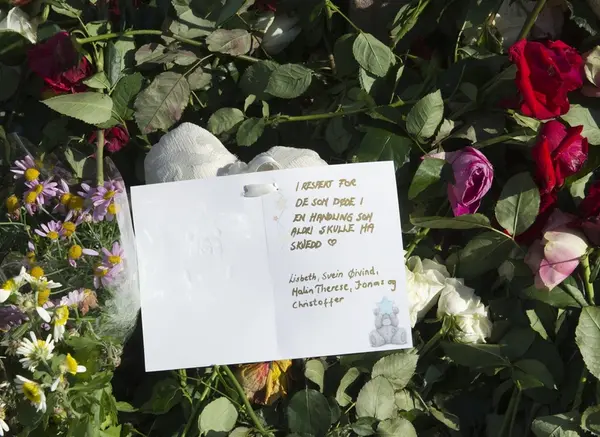 I RESPEKT FOR
DE SOM DØDE I
EN HANDLING SOM
ALDRI SKULLE HA
SKJEDD ♡
Lisbeth, Svein Øivind,
Malin Therese, Jonas og
Christoffer